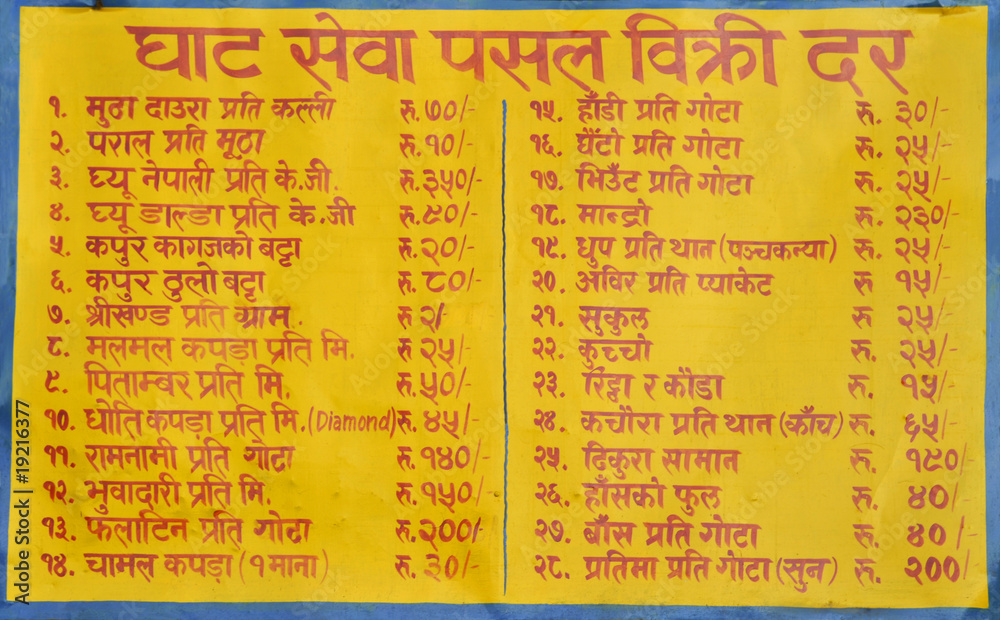 घाट सेवा पसल विक्री दर
१. मुठा दाउरा प्रति कल्ली रु.७०/-
२. पराल प्रति मूठा रु.१०/-
३. घ्यू नेपाली प्रति के.जी. रु.३५०/-
४. घ्यू डाल्डा प्रति के.जी रु.९०/-
५. कपुर कागजको बट्टा रु.२०/-
६. कपुर ठुलो बट्टा रु.८०/-
७. श्रीखण्ड प्रति ग्राम. रु २/-
८. मलमल कपडा प्रति मि. रु २५/-
९. पिताम्बर प्रति मि. रु.५०/-
१०. धोति कपडा प्रति मि.(Diamond) रु.४५/-
११. रामनामी प्रति गोटा रु.१४०/-
१२. भुवादारी प्रति मि. रु.१५०/-
१३. फलाटिन प्रति गोटा रु.२००/-
१४. चामल कपडा (१ माना) रु.३०/-
१५. हाँडी प्रति गोटा रु. ३०/-
१६. घैंटो प्रति गोटा रु. २५/-
१७. भिउँट प्रति गोटा रु. २५/-
१८. मान्द्रो रु. २३०/-
१९. धुप प्रति थान (पञ्चकन्या) रु. २५/-
२०. अविर प्रति प्याकेट रु १५/-
२१. सुकुल रु २५/-
२२. कुच्चो रु. २५/-
२३. रिट्ठा र कौडा रु. १५/-
२४. कचौरा प्रति थान (काँच) रु. ६५/-
२५. ढिकुरा सामान रु. १९०/-
२६. हाँसको फुल रु. ४०/
२७. बाँस प्रति गोटा रु. ४०/-
२८. प्रतिमा प्रति गोटा (सुन) रु. २००/
Adobe Stock | #19216377